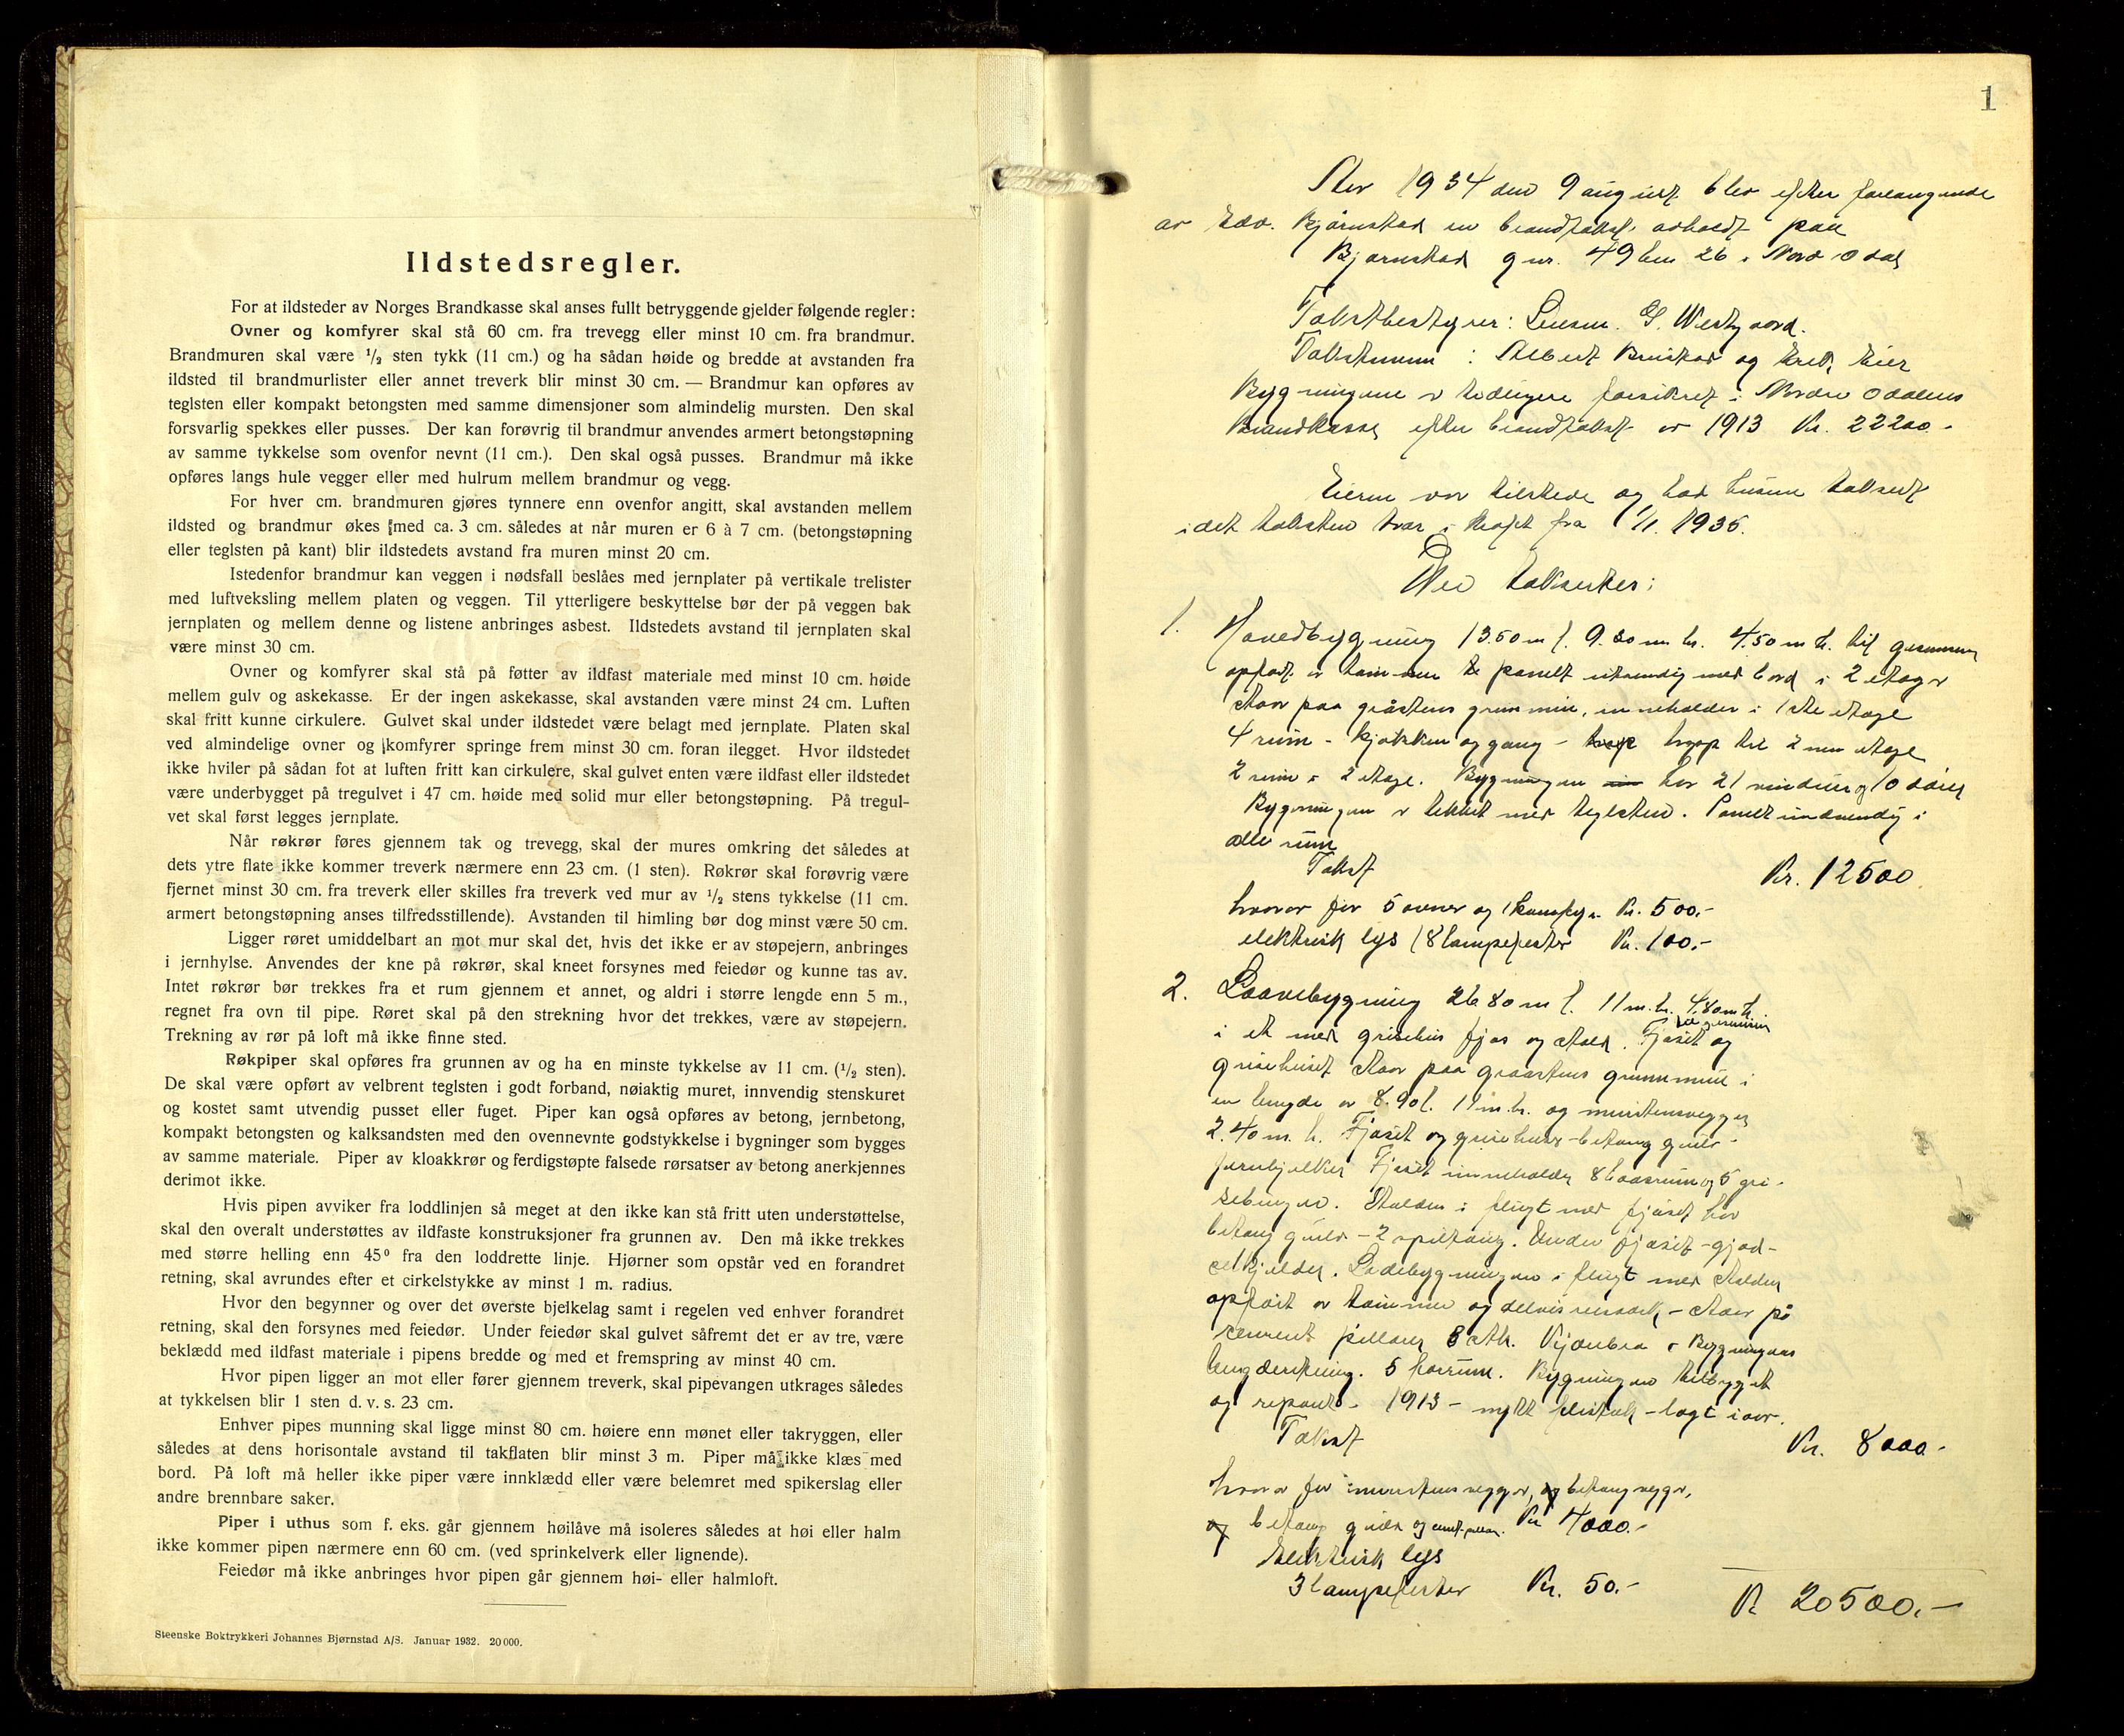 Ildstedsregler.
For at ildsteder av Norges Brandkasse skal anses fullt betryggende gjelder følgende regler:
Ovner og komfyrer skal stå 60 cm. fra trevegg eller minst 10 cm. fra brandmur.
Brandmuren skal være ½ sten tykk (11 cm.) og ha sådan høide og bredde at avstanden fra
ildsted til brandmurlister eller annet treverk blir minst 30 cm. — Brandmur kan opføres av
teglsten eller kompakt betongsten med samme dimensjoner som almindelig mursten. Den skal
forsvarlig spekkes eller pusses. Der kan forøvrig til brandmur anvendes armert betongstøpning
av samme tykkelse som ovenfor nevnt (11 cm.). Den skal også pusses. Brandmur må ikke
opføres langs hule vegger eller med hulrum mellem brandmur og vegg.
For hver cm. brandmuren gjøres tynnere enn ovenfor angitt, skal avstanden mellem
ildsted og brandmur økes med ca. 3 cm. således at når muren er 6 à 7 cm. (betongstøpning
eller teglsten på kant) blir ildstedets avstand fra muren minst 20 cm.
Istedenfor brandmur kan veggen i nødsfall beslåes med jernplater på vertikale trelister
med luftveksling mellem platen og veggen. Til ytterligere beskyttelse bør der på veggen bak
jernplaten og mellem denne og listene anbringes asbest. Ildstedets avstand til jernplaten skal
være minst 30 cm.
Ovner og komfyrer skal stå på føtter av ildfast materiale med minst 10 cm. høide
mellem gulv og askekasse. Er der ingen askekasse, skal avstanden være minst 24 cm. Luften
skal fritt kunne cirkulere. Gulvet skal under ildstedet være belagt med jernplate. Platen skal
ved almindelige ovner og komfyrer springe frem minst 30 cm. foran ilegget. Hvor ildstedet
ikke hviler på sådan fot at luften fritt kan cirkulere, skal gulvet enten være ildfast eller ildstedet
være underbygget på tregulvet i 47 cm. høide med solid mur eller betongstøpning. På tregul-
vet skal først legges jernplate.
Når røkrør føres gjennem tak og trevegg, skal der mures omkring det således at
dets ytre flate ikke kommer treverk nærmere enn 23 cm. (1 sten). Røkrør skal forøvrig være
fjernet minst 30 cm. fra treverk eller skilles fra treverk ved mur av ½ stens tykkelse (11 cm.
armert betongstøpning anses tilfredsstillende). Avstanden til himling bør dog minst være 50 cm.
Ligger røret umiddelbart an mot mur skal det, hvis det ikke er av støpejern, anbringes
i jernhylse. Anvendes der kne på røkrør, skal kneet forsynes med feiedør og kunne tas av.
Intet røkrør bør trekkes fra et rum gjennem et annet, og aldri i større lengde enn 5 m.,
regnet fra ovn til pipe. Røret skal på den strekning hvor det trekkes, være av støpejern.
Trekning av rør på loft må ikke finne sted.
Røkpiper skal opføres fra grunnen av og ha en minste tykkelse av 11 cm. (½ sten).
De skal være opført av velbrent teglsten i godt forband, nøiaktig muret, innvendig stenskuret
og kostet samt utvendig pusset eller fuget. Piper kan også opføres av betong, jernbetong,
kompakt betongsten og kalksandsten med den ovennevnte godstykkelse i bygninger som bygges
av samme materiale. Piper av kloakkrør og ferdigstøpte falsede rørsatser av betong anerkjennes
derimot ikke.
Hvis pipen avviker fra loddlinjen så meget at den ikke kan stå fritt uten understøttelse,
skal den overalt understøttes av ildfaste konstruksjoner fra grunnen av. Den må ikke trekkes
med større helling enn 45° fra den loddrette linje. Hjørner som opstår ved en forandret
retning, skal avrundes efter et cirkelstykke av minst 1 m. radius.
Hvor den begynner og over det øverste bjelkelag samt i regelen ved enhver forandret
retning, skal den forsynes med feiedør. Under feiedør skal gulvet såfremt det er av tre, være
beklædd med ildfast materiale i pipens bredde og med et fremspring av minst 40 cm.
Hvor pipen ligger an mot eller fører gjennem treverk, skal pipevangen utkrages således
at tykkelsen blir 1 sten d. v. s. 23 cm.
Enhver pipes munning skal ligge minst 80 cm. høiere enn mønet eller takryggen, eller
således at dens horisontale avstand til takflaten blir minst 3 m. Piper må ikke klæs med
bord. På loft må heller ikke piper være innklædd eller være belemret med spikerslag eller
andre brennbare saker.
Piper i uthus som f. eks. går gjennem høilåve må isoleres således at høi eller halm
ikke kommer pipen nærmere enn 60 cm. (ved sprinkelverk eller lignende).
Feiedør må ikke anbringes hvor pipen går gjennem høi- eller halmloft.
Steenske Boktrykkeri Johannes Bjørnstad A/S. Januar 1932. 20 000.
1
Aar 1934 den 9 august blev efter forlangende
av Edv. Bjørnstad en brandtakst avholdt paa
Bjørnstad gnr. 49 bnr 26 i Nord Odal
Takstbestyrer: Lensm. G. Westgaard.
Takstmenn : Albert Brustad og Eier
Bygningene er tidligere forsikret i Nordre Odalens
Brandkasse efter brandtakst av 1913 Kr. 22200.-
Eieren var tilstede og bad husene taksert
idet taksten trær i kraft fra 1/1. 1935.
Der taksertes:
1. Hovedbygning 13.50 m l. 9.20 m br. 4.50 m h. til gesimsen
opført av tømmer panelt utvendig med bord i 2 etager
staar paa gråstens grunnmur, inneholder i 1ste etage
4 rum - kjøkken og gang - trapp til 2nen etage
2 rum i 2 etage. Bygningen har 21 vinduer og 10 dører
Bygningen er tekket med teglsten. Panelt indvendig i
alle rum
Takst Kr. 12500
hvorav for 5 ovner og 1 komfyr Kr. 500.-
elektrisk lys 18 lampefester Kr. 100.-
2. Laavebygning 26.80 m l. 11 m. br. 4.80 m h.
til gesimsen
i et med grisehus fjøs og stald. Fjøset og
grisehuset staar paa graastens grunnmur i
en lengde av 8.90 l. 11 m. br. og murstensvegger
2.40 m. h. Fjøset og grisehuset - betong gulv -
jernbjelker Fjøset inneholder 8 baasrum og 5 gri-
sebinger. Stalden i flugt med fjøset har
betong gulv - 2 spiltaug. Under fjøset - gjød-
selkjelder. Ladebygningen i flugt med stalden
opført av tømmer og delvis reisverk - staar på
cement pillarer 8 stk. Kjørebro i Bygningens
lengderetning. 5 høirum. Bygningen tilbygget
og repart. 1913 - nytt flistak - lagt iaar.
Takst Kr. 8000.-
hvorav for murstensvegger, betongvegger,
betong gulv og Kr 4000.-
Elektrisk lys
3 lampefester Kr. 50.-
Kr 20500.-